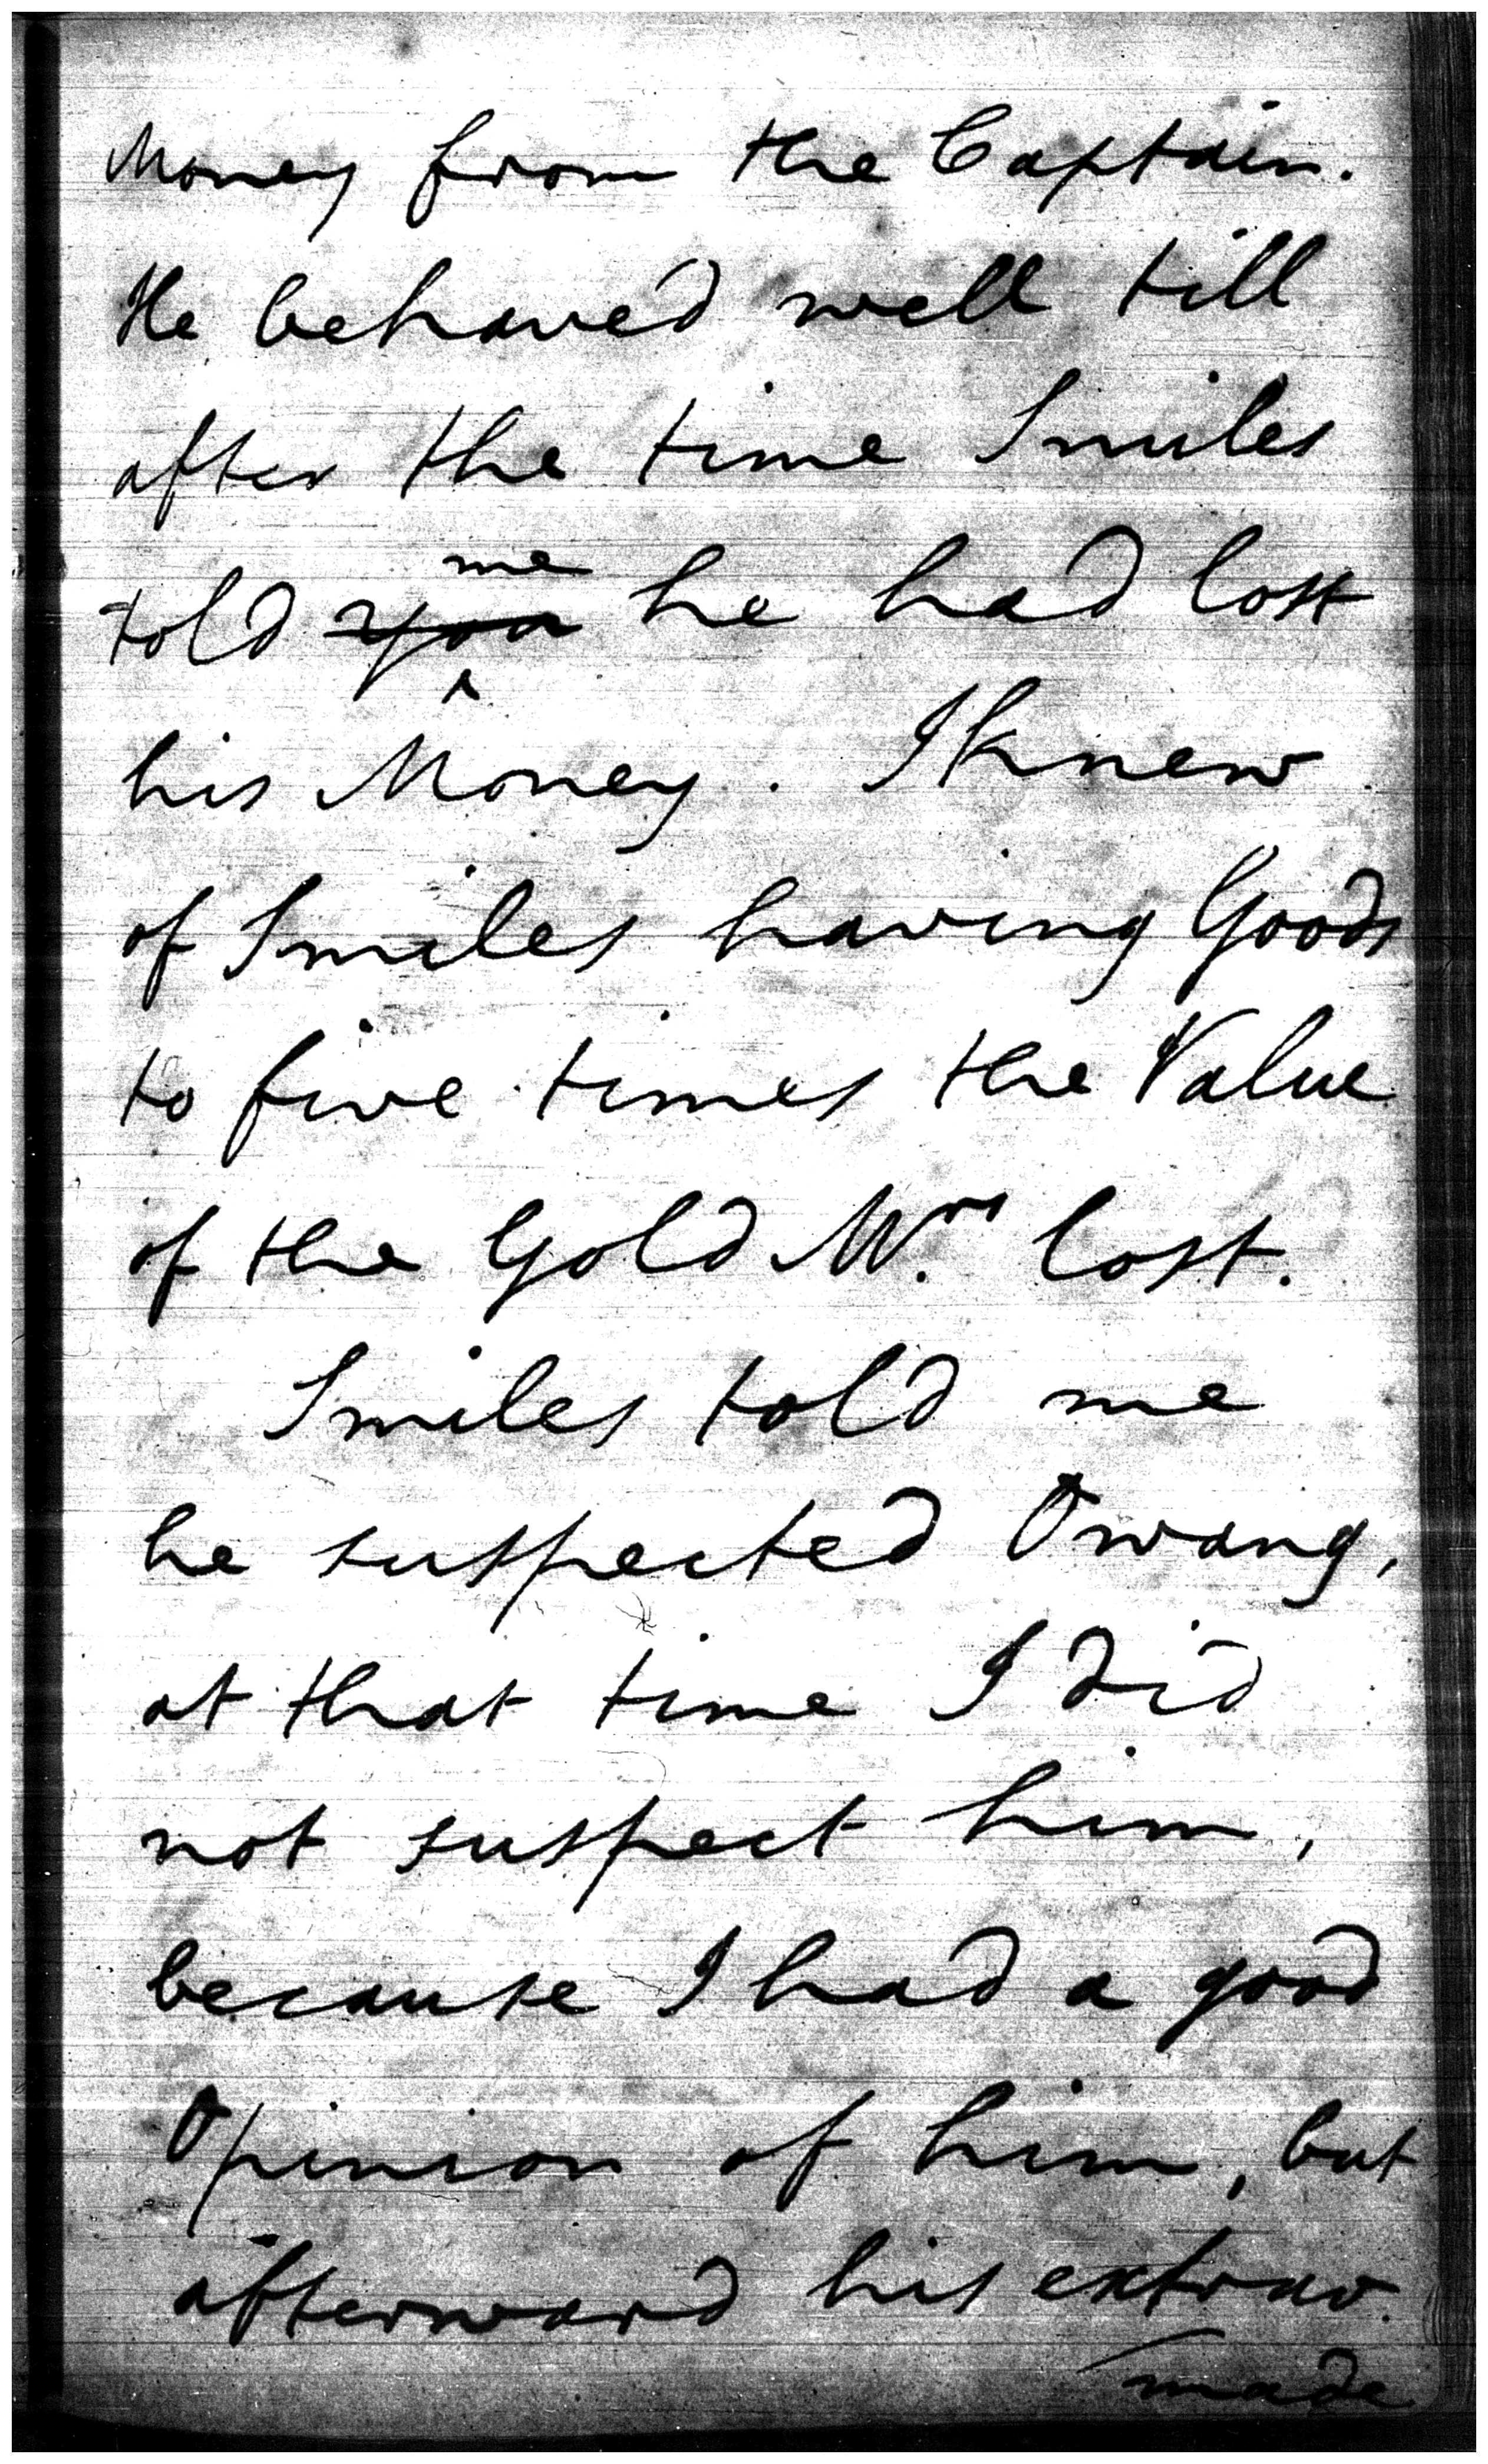 Money from the Captain.
He behaved well till
after the time Smiles
told you me he had lost
his Money. I knew
of Smiles having Goods
to five times the Value
of the Gold Mrs lost.
Smiles told me
he suspected Owang,
at that time I did
not suspect him,
because I had a good
Opinion of him, but
afterward his extrav.
made